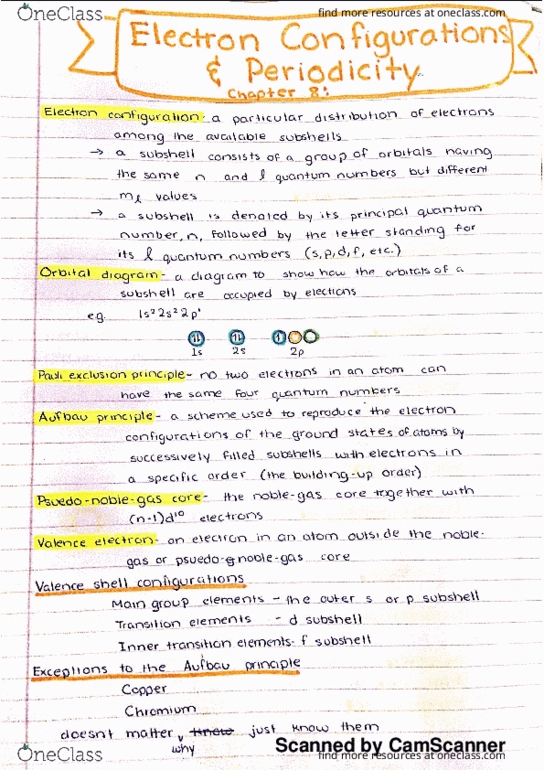 OneClass
find more resources at oneclass.com
Electron Configurations
& Periodicity
Chapter 8:
Electron configuration- a particular distribution of electrons
among the available subshells
→ a subshell consists of a group of orbitals having
the same n and l quantum numbers but different
mℓ values
→ a subshell is denoted by its principal quantum
number, n, followed by the letter standing for
its l quantum numbers (s, p, d, f, etc.)
Orbital diagram- a diagram to show how the orbitals of a
subshell are occupied by electrons
eg. 1s² 2s² 2p¹
1s 2s 2p
Pauli exclusion principle- no two electrons in an atom can
have the same four quantum numbers
Aufbau principle- a scheme used to reproduce the electron
configurations of the ground states of atoms by
successively filled subshells with electrons in
a specific order (the building-up order)
Psuedo-noble-gas core- the noble-gas core together with
(n-1)d¹⁰ electrons
Valence electron- an electron in an atom outside the noble-
gas or psuedo-noble-gas core
Valence shell configurations
Main group elements - the outer s or p subshell
Transition elements - d subshell
Inner transition elements- f subshell
Exceptions to the Aufbau principle
Copper
Chromium
doesnt matter, why just know them
OneClass
Scanned by CamScanner
find more resources at oneclass.com